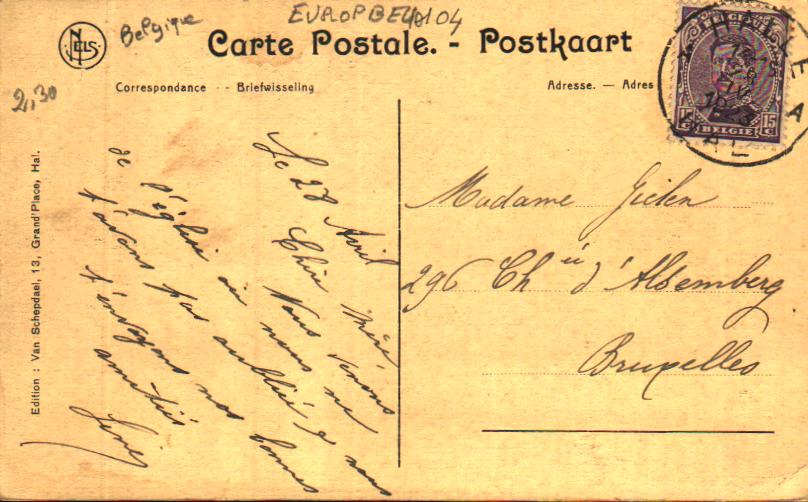 Belgique
EUROPBEL0104
NELS
Carte Postale. - Postkaart
2,30
Correspondance - - Briefwisseling
Adresse. — Adres
BELGIQUE
15 C
15 C
BELGIE
HAL
1923
Edition : Van Schepdael, 13, Grand'Place, Hal.
Le 28 Avril
Chère Mère
Nous venons
de l'église où nous ne
t'avons pas oublié & nous
t'envoyons nos bonnes
amitiés
Madame Gielen
296 Chée d'Alsemberg
Bruxelles